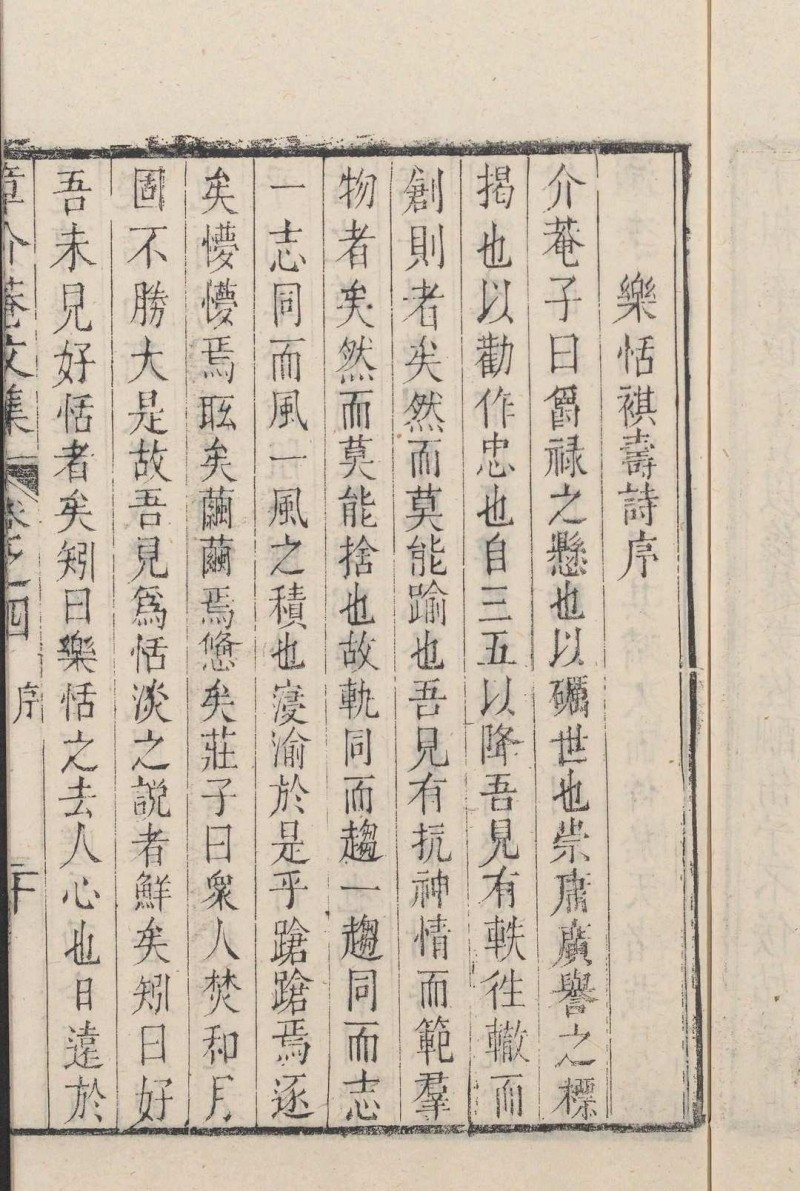 樂恬祺壽詩序
介菴子曰爵祿之懸也以礪世也崇肅廣譽之標
揭也以勸作忠也自三五以降吾見有軼徃轍而
創則者矣然而莫能踰也吾見有抗神情而範羣
物者矣然而莫能捨也故軌同而趨一趨同而志
一志同而風一風之積也寖渝於是乎蹌蹌焉逐
矣懮懮焉眩矣繭繭焉憊矣莊子曰衆人焚和月
固不勝火是故吾見爲恬淡之説者鮮矣矧曰好
吾未見好恬者矣矧曰樂恬之去人心也日遠於
章介菴文集 卷之四 序 二十